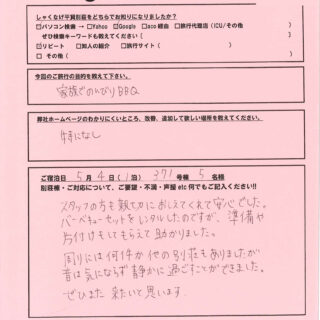 しゃくなげ平貸別荘をどちらでお知りになりましたか?
☑パソコン検索 → □Yahoo ☑Google □aco経由 □旅行代理店(ICU/その他 )
ぜひ検索キーワードも教えてください【 】
☑リピート □知人の紹介 □旅行サイト( )
□その他( )
今回のご旅行の目的を教えて下さい。
家族でのんびりBBQ
弊社ホームページのわかりにくいところ、改善、追加して欲しい場所を教えてください。
特になし
ご宿泊日 5月4日(1泊) 371号棟 5名様
別荘棟・ご対応について、ご要望・不満・声援 etc 何でもご記入ください!!
スタッフの方も親切におしえてくれて安心でした。
バーベキューセットをレンタルしたのですが、準備や
片付けもしてもらえて助かりました。
周りには何件か他の別荘もありましたが
音は気にならず静かに過ごすことができました。
ぜひまた来たいと思います。